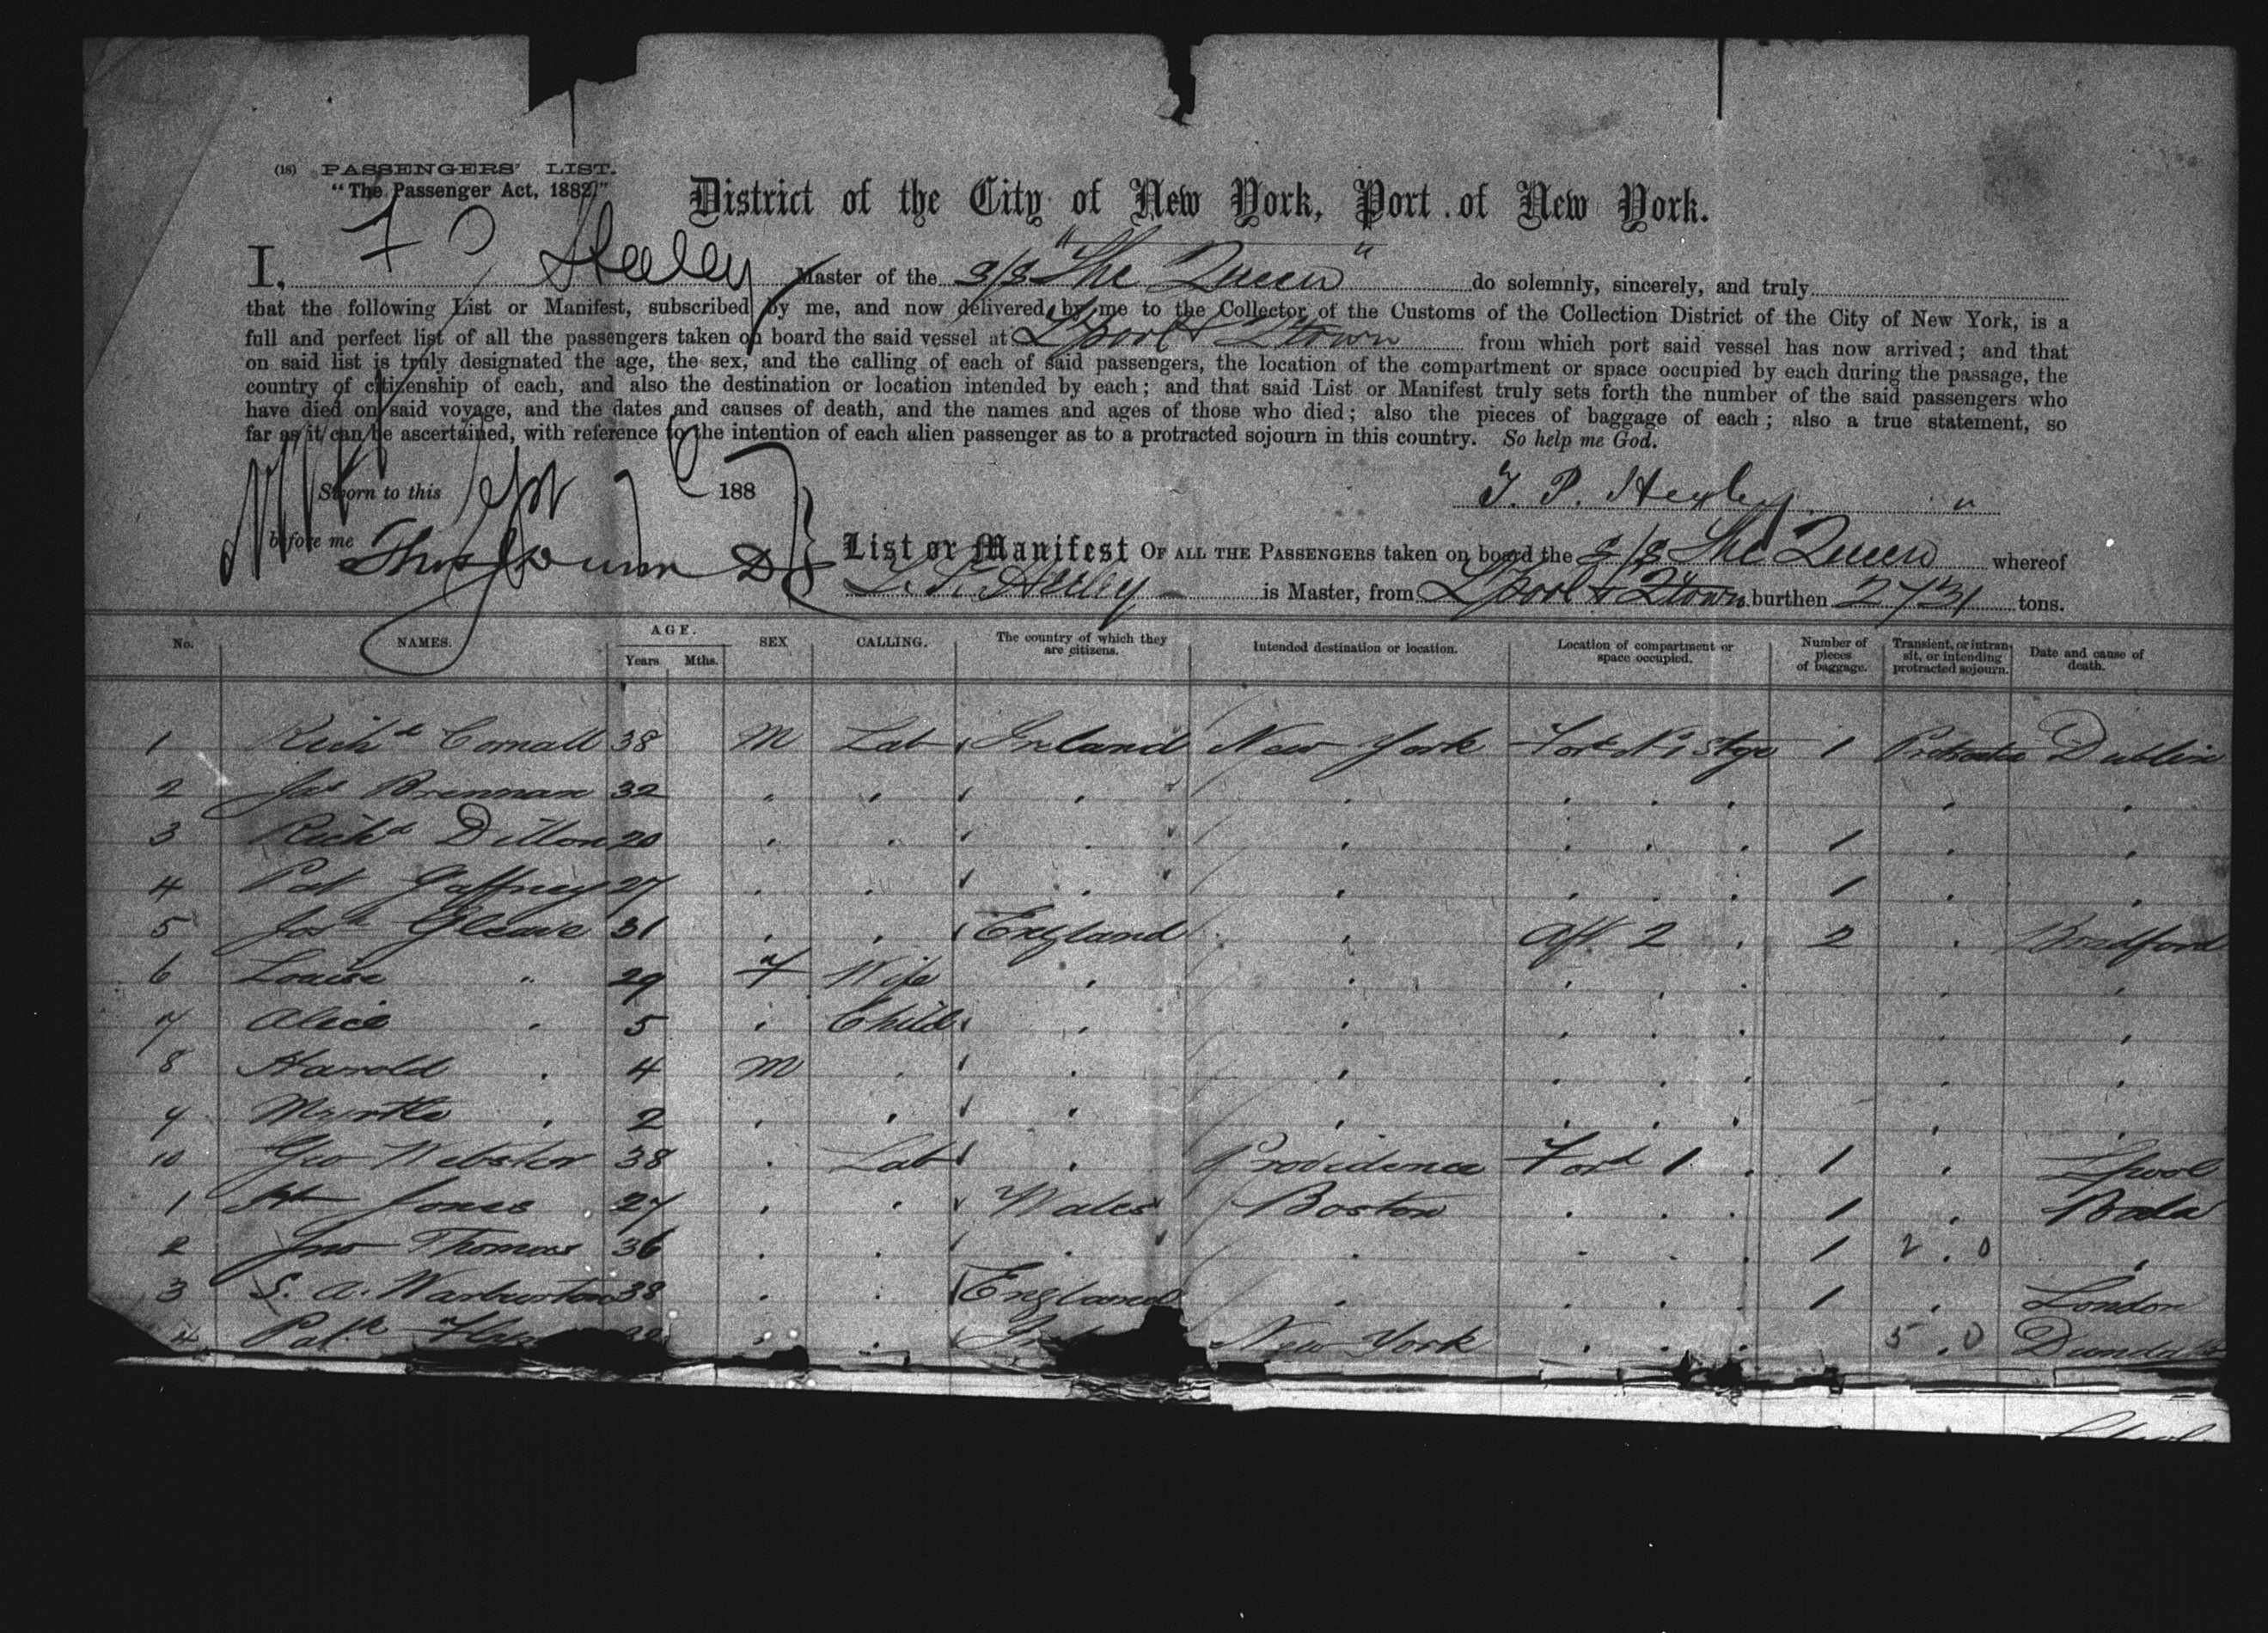 (18) PASSENGERS' LIST.
"The Passenger Act, 1882."
District of the City of New York, Port of New York.
I, Heeley Master of the s/s "The Queen" do solemnly, sincerely, and truly
that the following List or Manifest, subscribed by me, and now delivered by me to the Collector of the Customs of the Collection District of the City of New York, is a
full and perfect list of all the passengers taken on board the said vessel at L'pool & Q'town from which port said vessel has now arrived; and that
on said list is truly designated the age, the sex, and the calling of each of said passengers, the location of the compartment or space occupied by each during the passage, the
country of citizenship of each, and also the destination or location intended by each; and that said List or Manifest truly sets forth the number of the said passengers who
have died on said voyage, and the dates and causes of death, and the names and ages of those who died; also the pieces of baggage of each; also a true statement, so
far as it can be ascertained, with reference to the intention of each alien passenger as to a protracted sojourn in this country. So help me God.
Sworn to this Sept 188
T. P. Heeley
before me
List or Manifest OF ALL THE PASSENGERS taken on board the s/s The Queen whereof
T. P. Heeley is Master, from L'pool & Q'town burthen 2731 tons.
No. NAMES. AGE. Years Mths. SEX CALLING. The country of which they are citizens. Intended destination or location. Location of compartment or space occupied. Number of pieces of baggage. Transient, or intransit, or intending protracted sojourn. Date and cause of death.
1 Richd Cornall 38 M Lab Ireland New York Ford No 1 Stge 1 Dublin
2 Jas Brennan 32 " " " " " " " " "
3 Richd Dillon 20 " " " " " " " 1 " "
4 Pat Gaffney 27 " " " " " " " 1 " "
5 Josh Gleave 31 " " England " Aft 2 " 2 " Bradford
6 Louisa " 29 F Wife " " " " " " "
7 Alice " 5 " Child " " " " " " "
8 Harold " 4 M " " " " " " " "
9 Myrtle " 2 " " " " " " " " "
10 Geo Webster 38 " Lab " Providence Ford 1 " 1 " L'pool
1 Jones 27 " " Wales Boston " " " 1 " Bala
2 Jno Thomas 36 " " " " " " " 1 2 . 0 "
3 S. A. Warburton 38 " " England " " " " 1 " London
4 Patk " " New York " " " 5 . 0 Dundalk